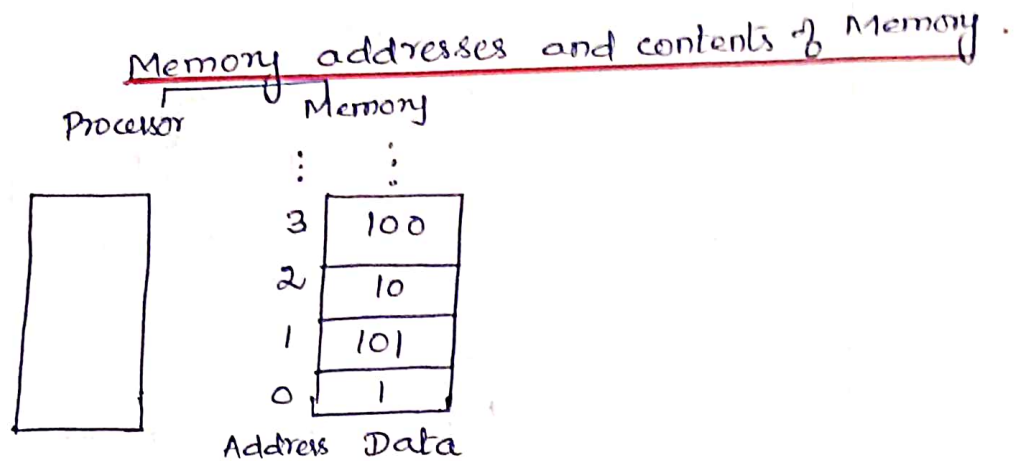 Memory addresses and contents of Memory.
Processor Memory
⋮ ⋮
3 100
2 10
1 101
0 1
Address Data